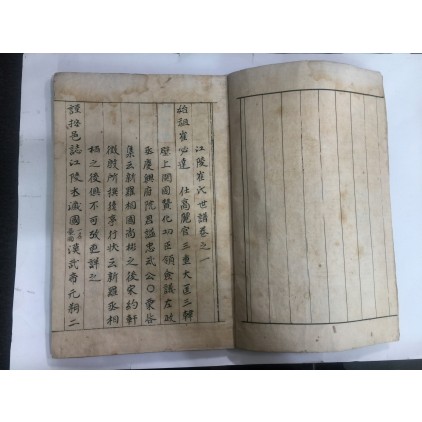 江陵崔氏世譜卷之一
始祖崔必達 仕高麗官三重大匡三韓
壁上開國贊化功臣領僉議左政
丞慶興府院君諡忠武公○栗谷
集云新羅相國尚相之後宋約軒
徵殷所撰行狀云新羅丞相
之後俱不可攷邑詳之
謹按邑誌江陵本濊國漢武帝元朔二